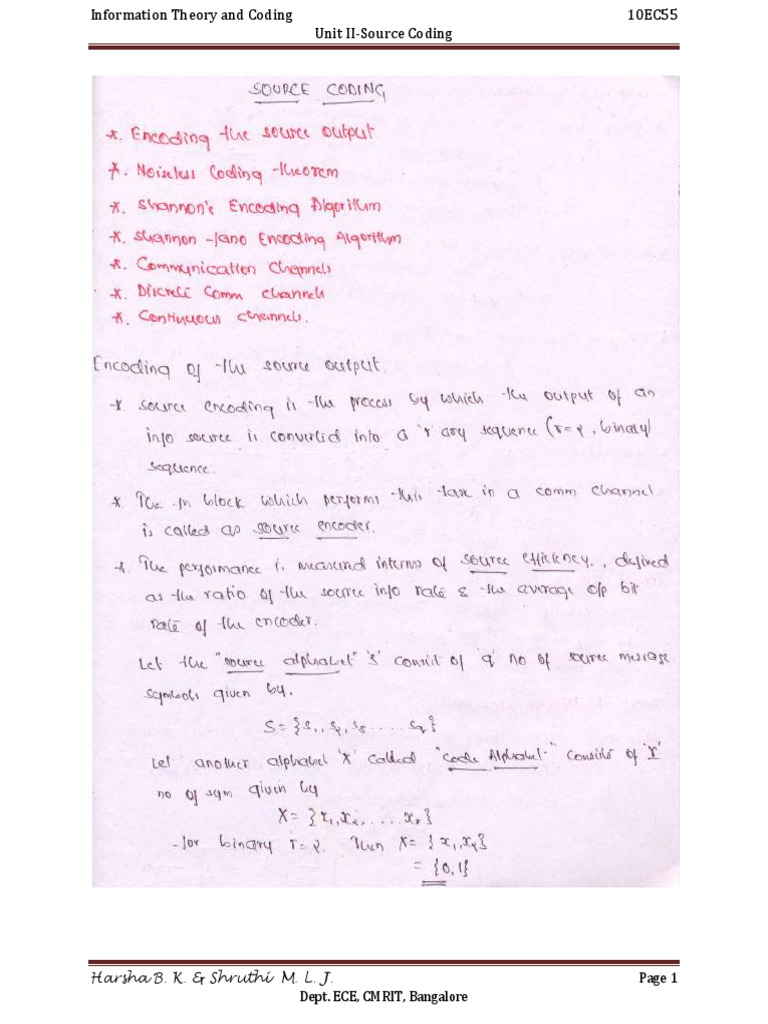 Information Theory and Coding 10EC55
Unit II-Source Coding
SOURCE CODING
*. Encoding the source output
*. Noiseless Coding -theorem
*. Shannon's Encoding Algorithm
*. Shannon -fano Encoding Algorithm
*. Communication Channels
*. Discrete Comm channels
*. Continuous channels.
Encoding of the source output.
* source encoding is the process by which the output of an
info source is converted into a 'r' ary sequence (r=2, binary)
sequence.
* The fn block which performs this task in a comm channel
is called as source encoder.
*. The performance is measured interms of source efficiency., defined
as the ratio of the source info rate & the average o/p bit
rate of the encoder.
Let the "source alphabet" 's' consist of 'q' no of source message
symbols given by.
S = {s1, s2, s3 .... sq}
Let another alphabet 'X' called "code Alphabet" consists of 'r'
no of sym given by
X = {x1, x2, .... xr}
for binary r=2. Then X = {x1, x2}
= {0,1}
Harsha B. K. & Shruthi M. L. J. Page 1
Dept. ECE, CMRIT, Bangalore